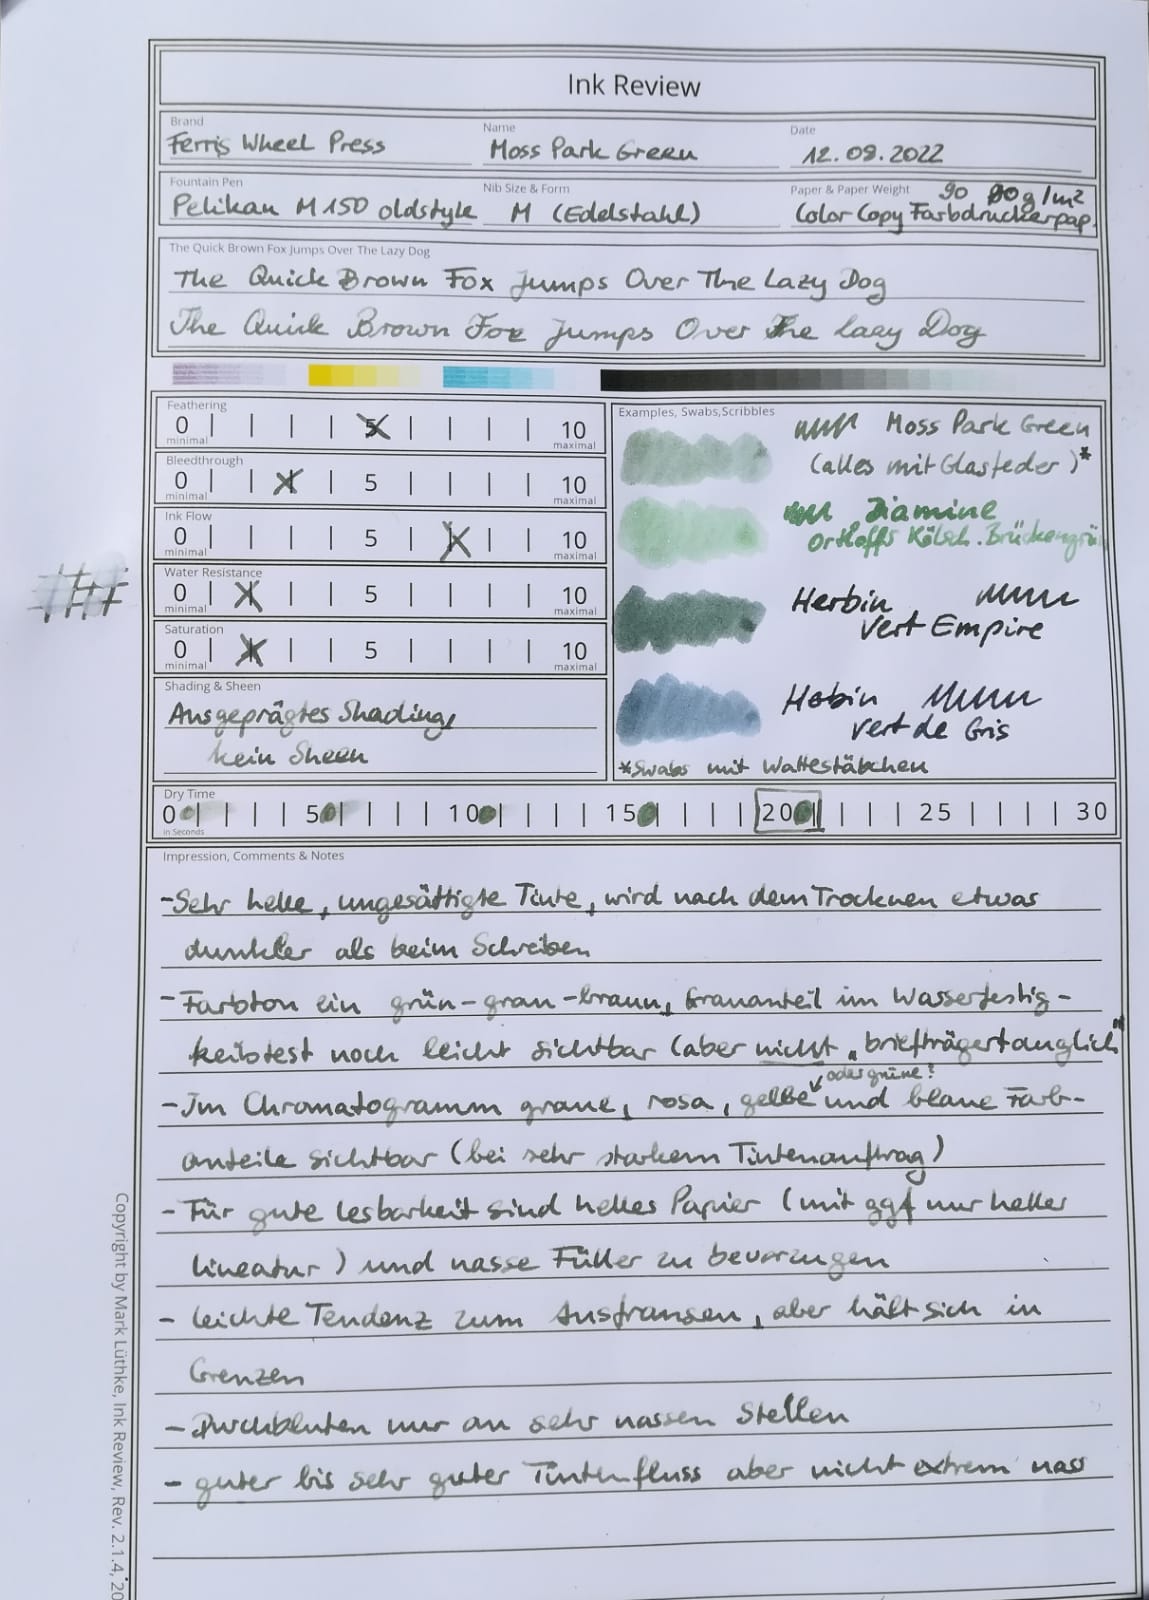 Ink Review
Brand
Ferris Wheel Press
Name
Moss Park Green
Date
12.09.2022
Fountain Pen
Pelikan M150 oldstyle
Nib Size & Form
M (Edelstahl)
Paper & Paper Weight
90 g/m²
Color Copy Farbdruckerpap.
The Quick Brown Fox Jumps Over The Lazy Dog
The Quick Brown Fox Jumps Over The Lazy Dog
The Quick Brown Fox Jumps Over The Lazy Dog
Feathering
0 | | | | 5 | | | | 10
minimal maximal
Bleedthrough
0 | | | | 5 | | | | 10
minimal maximal
Ink Flow
0 | | | | 5 | | | | 10
minimal maximal
Water Resistance
0 | | | | 5 | | | | 10
minimal maximal
Saturation
0 | | | | 5 | | | | 10
minimal maximal
Shading & Sheen
Ausgeprägtes Shading,
kein Sheen
Examples, Swabs,Scribbles
Moss Park Green
(alles mit Glasfeder)*
Diamine
Ortloffs Kölsch. Brückengrü
Herbin
Vert Empire
Herbin
Vert de Gris
*Swabs mit Wattestäbchen
Dry Time
0 | | | | 5 | | | | 10 | | | | 15 | | | | 20 | | | | 25 | | | | 30
in Seconds
Impression, Comments & Notes
- Sehr helle, ungesättigte Tinte, wird nach dem Trocknen etwas
dunkler als beim Schreiben
- Farbton ein grün-grau-braun, Grauanteil im Wasserfestig-
keitstest noch leicht sichtbar (aber nicht „briefträgertauglich"
oder grüne?
- Im Chromatogramm graue, rosa, gelbe und blaue Farb-
anteile sichtbar (bei sehr starkem Tintenauftrag)
- Für gute Lesbarkeit sind helles Papier (mit ggf nur heller
Lineatur) und nasse Füller zu bevorzugen
- leichte Tendenz zum Ausfransen, aber hält sich in
Grenzen
- Durchbluten nur an sehr nassen Stellen
- guter bis sehr guter Tintenfluss aber nicht extrem nass
Copyright by Mark Lüthke, Ink Review, Rev. 2.1.4, 20